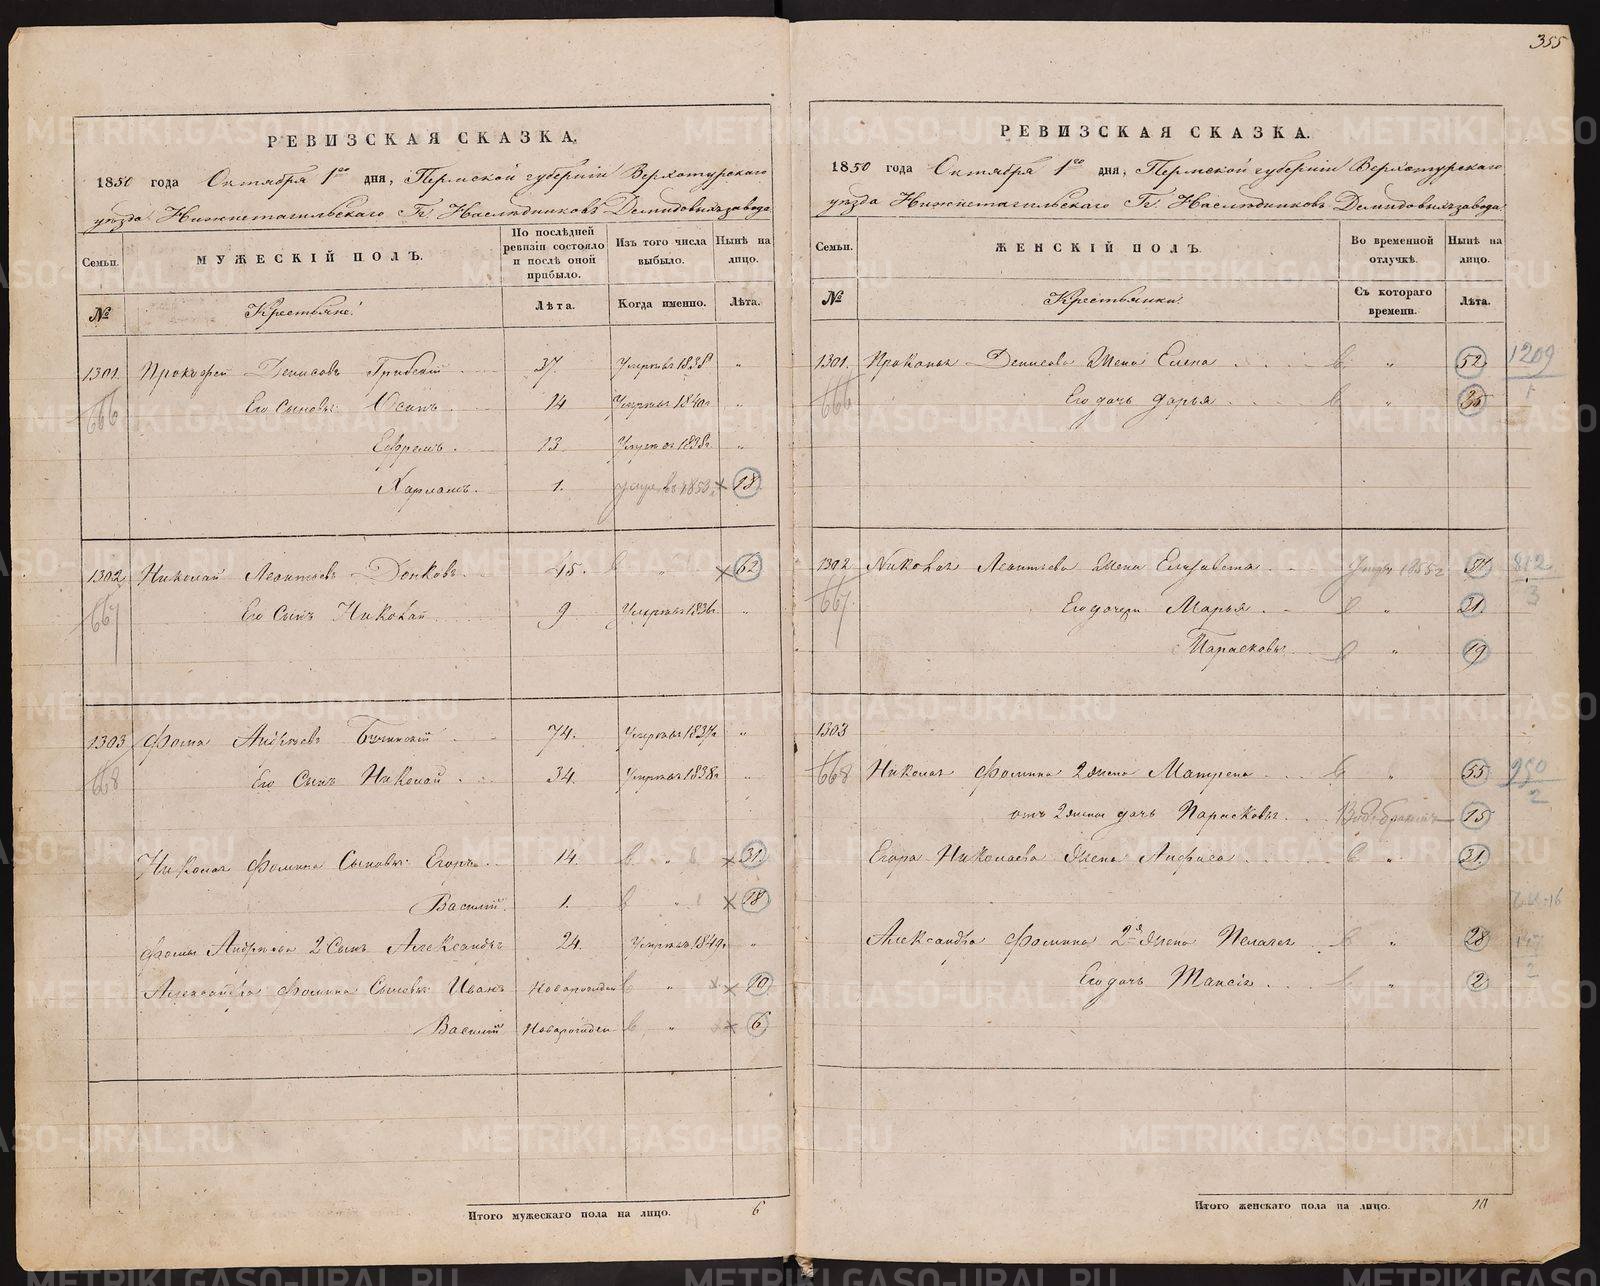 355
РЕВИЗСКАЯ СКАЗКА.
1850 года Октября 1го дня, Пермской губернии Верхотурскаго
уѣзда Нижнетагильскаго Гг. Наслѣдниковъ Демидовыхъ завода
Семьи.
МУЖЕСКІЙ ПОЛЪ.
По послѣдней ревизіи состояло и послѣ оной прибыло.
Изъ того числа выбыло.
Нынѣ на лицо.
№
Крестьяне:
Лѣта.
Когда именно.
Лѣта.
1301. Прокофей Денисовъ 37. Умеръ въ 1838 "
666 Его Сыновья: Осипъ. 14 Умеръ въ 1840 "
Ефремъ. 13 Умеръ въ 1838 "
1. 1853 × 18
1302 Николай Леонтьевъ Донковъ. 45. " × 62
667 Его Сынъ Николай 9 Умеръ въ 1836 "
1303 Фома Андреевъ 74. Умеръ въ 1837 "
668 Его Сынъ Николай 34. Умеръ въ 1838 "
Николая Фомина Сыновья: Егоръ 14. " × 31
Василий. 1. " × 18
Фомы Андреева 2 Сынъ Александръ 24. Умеръ въ 1849 "
Александра Фомина Сыновья: Иванъ Новорожден " × 10
Василий Новорожден " × 6
Итого мужескаго пола на лицо. 6
РЕВИЗСКАЯ СКАЗКА.
1850 года Октября 1го дня, Пермской губерніи Верхотурскаго
уѣзда Нижнетагильскаго Гг. Наслѣдниковъ Демидовыхъ завода
Семьи.
ЖЕНСКІЙ ПОЛЪ.
Во временной отлучкѣ.
Нынѣ на лицо.
№
Крестьянки:
Съ котораго времени.
Лѣта.
1301. Прокопья Денисова Жена Елена " 52 1209
666 Его дочь Дарья " 1
1302 Николая Леонтьева Жена Елизавета 1855 812
667 Его дочери Марья " 31. 3
Парасковья " 19
1303
668 Николая Фомина 2 жена Матрена 55 950
отъ 2 жены дочь Парасковья 15 2
Егора Николаева Жена Анфиса " 31.
Александра Фомина 2я Жена Пелагея " 28
Его дочь Таисія " 2
Итого женскаго пола на лицо. 10
METRIKI.GASO-URAL.RU